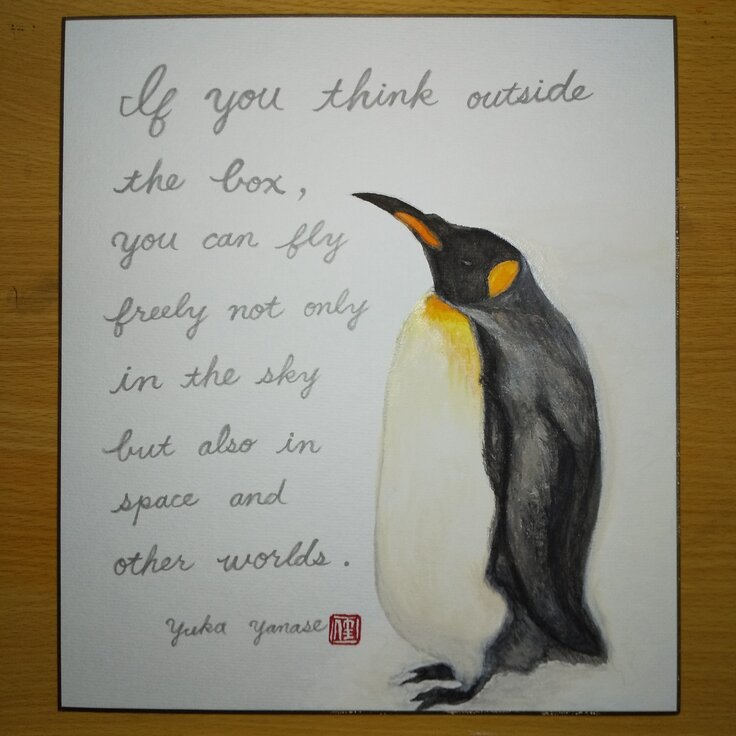 If you think outside
the box,
you can fly
freely not only
in the sky
but also in
space and
other worlds.
Yuka Yanase